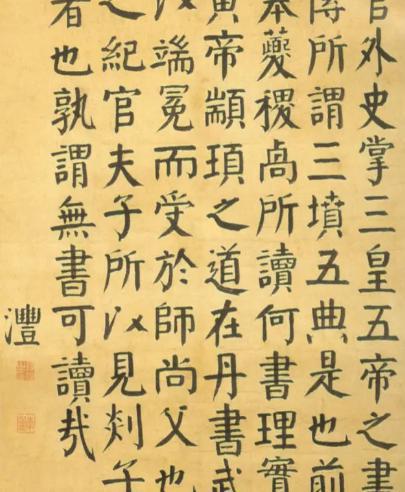 官外史掌三皇五帝之書
所謂三墳五典是也前
夔稷卨所讀何書理實
黃帝顓頊之道在丹書武
以端冕而受於師尚父也
之紀官夫子所以見剡子
者也孰謂無書可讀哉
灃